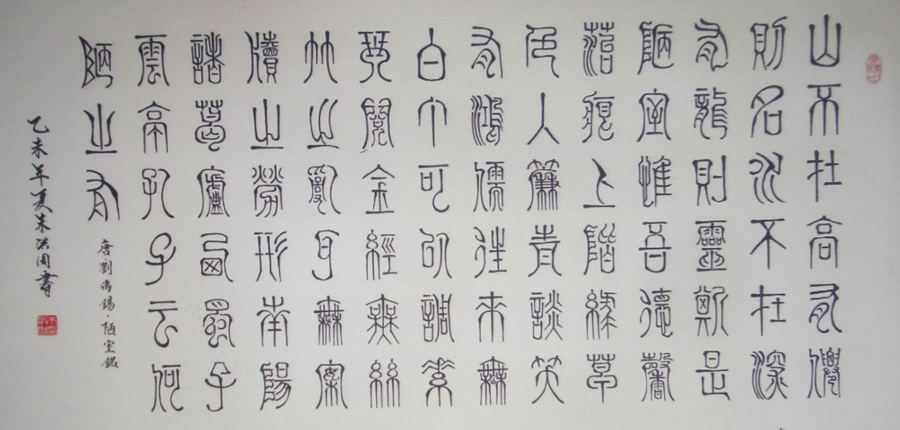 山不在高有僊
則名水不在深
有龍則靈斯是
陋室惟吾德馨
菭痕上階綠草
色入簾青談笑
有鴻儒往來無
白丁可以調素
琴閱金經無絲
竹之亂耳無案
牘之勞形南陽
諸葛廬西蜀子
雲亭孔子云何
陋之有
唐劉禹錫·陋室銘
乙未年夏朱洪周書